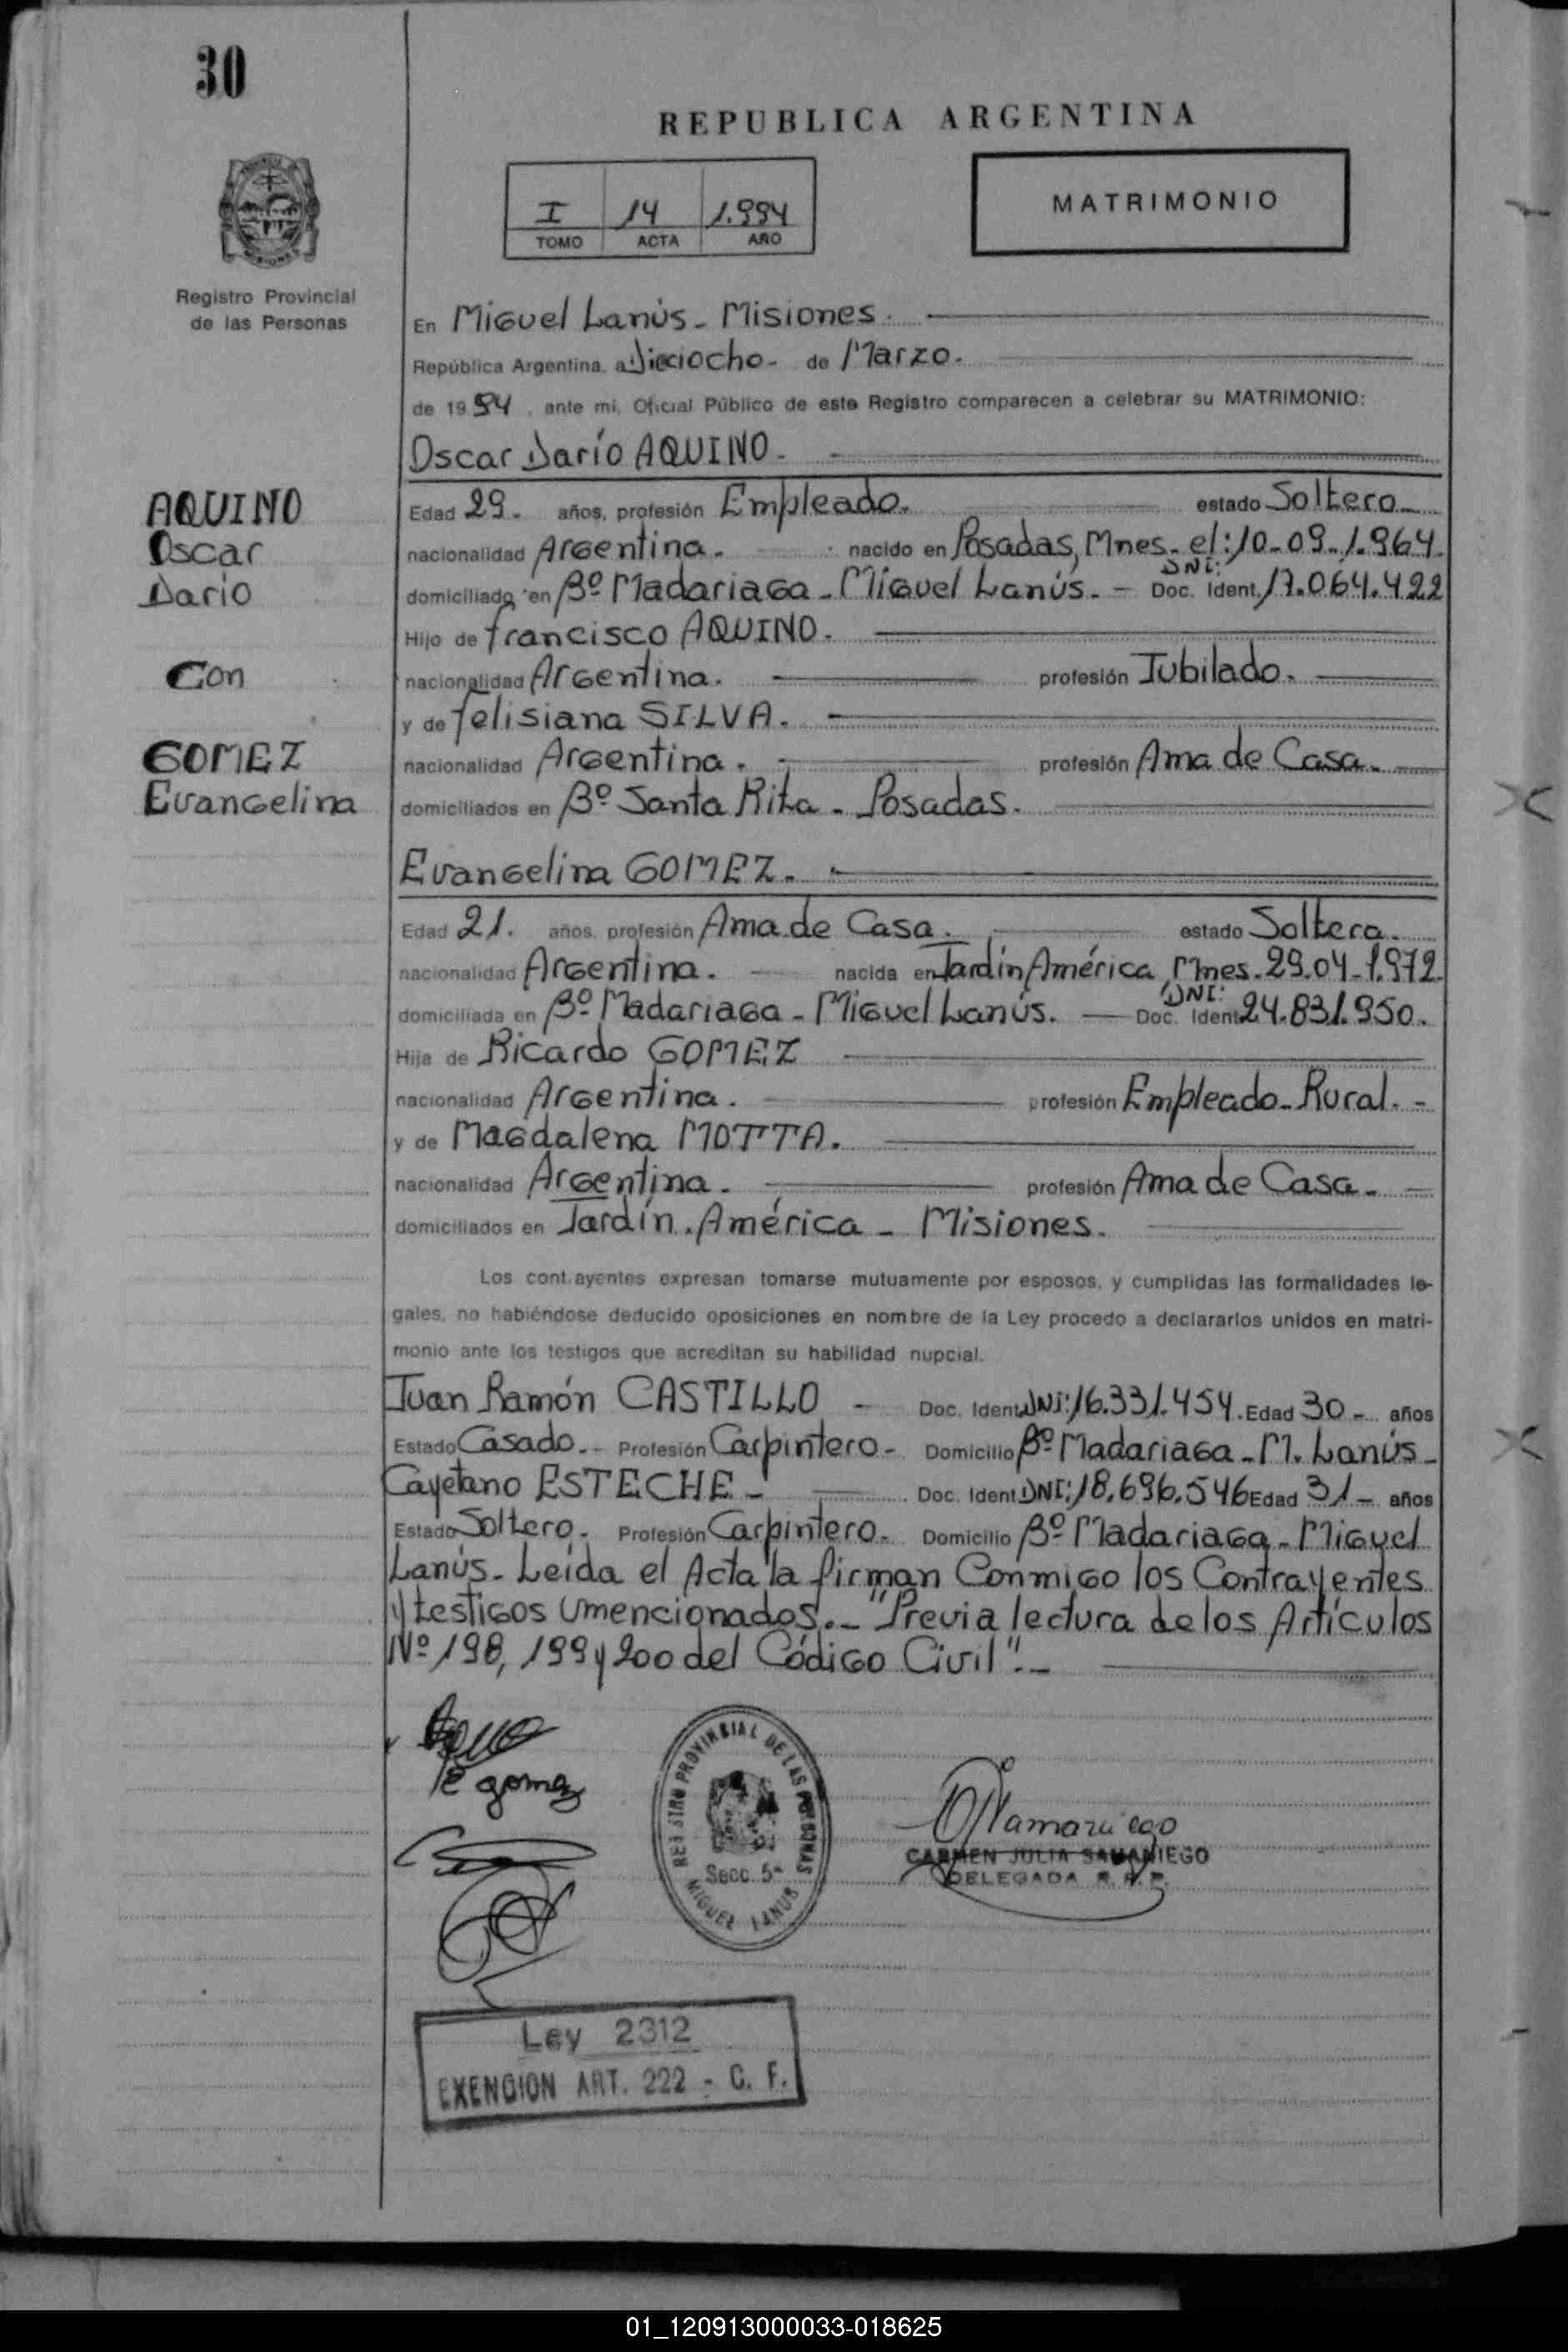 30
REPUBLICA ARGENTINA
I 14 1.994
TOMO ACTA AÑO
MATRIMONIO
Registro Provincial
de las Personas
En Miguel Lanús - Misiones.
República Argentina, a Dieciocho - de Marzo.
de 1994, ante mí, Oficial Público de este Registro comparecen a celebrar su MATRIMONIO:
Oscar Darío AQUINO.
AQUINO
Oscar
Darío
Con
GOMEZ
Evangelina
Edad 29. años, profesión Empleado. estado Soltero
nacionalidad Argentina. nacido en Posadas, Mnes. el: 10-09-1.964.
domiciliado en Bº Madariaga - Miguel Lanús. - Doc. Ident. DNI: 17.064.422
Hijo de francisco AQUINO.
nacionalidad Argentina. profesión Jubilado.
y de felisiana SILVA.
nacionalidad Argentina. profesión Ama de Casa.
domiciliados en Bº Santa Rita - Posadas.
Evangelina GOMEZ.
Edad 21. años, profesión Ama de Casa. estado Soltera.
nacionalidad Argentina. nacida en Jardín América Mnes. 29-04-1.972
domiciliada en Bº Madariaga - Miguel Lanús. - Doc. Ident. DNI: 24.831.950.
Hija de Ricardo GOMEZ
nacionalidad Argentina. profesión Empleado Rural. -
y de Magdalena MOTTA.
nacionalidad Argentina. profesión Ama de Casa. -
domiciliados en Jardín América - Misiones.
Los contrayentes expresan tomarse mutuamente por esposos, y cumplidas las formalidades le-
gales, no habiéndose deducido oposiciones en nombre de la Ley procedo a declararlos unidos en matri-
monio ante los testigos que acreditan su habilidad nupcial.
Juan Ramón CASTILLO - Doc. Ident. DNI: 16.331.454. Edad 30 - años
Estado Casado. - Profesión Carpintero - Domicilio Bº Madariaga - M. Lanús -
Cayetano ESTECHE - Doc. Ident. DNI: 18.696.546 Edad 31 - años
Estado Soltero. Profesión Carpintero. Domicilio Bº Madariaga - Miguel
Lanús - Leída el Acta la firman Conmigo los Contrayentes
y testigos mencionados. - "Previa lectura de los Artículos
Nº 198, 199 y 200 del Código Civil". -
E gomez
REGISTRO PROVINCIAL DE LAS PERSONAS
Secc. 5ª
MIGUEL LANUS
CARMEN JULIA SAMANIEGO
DELEGADA R. P. P.
Ley 2312
EXENCION ART. 222 - C. F.
01_120913000033-018625